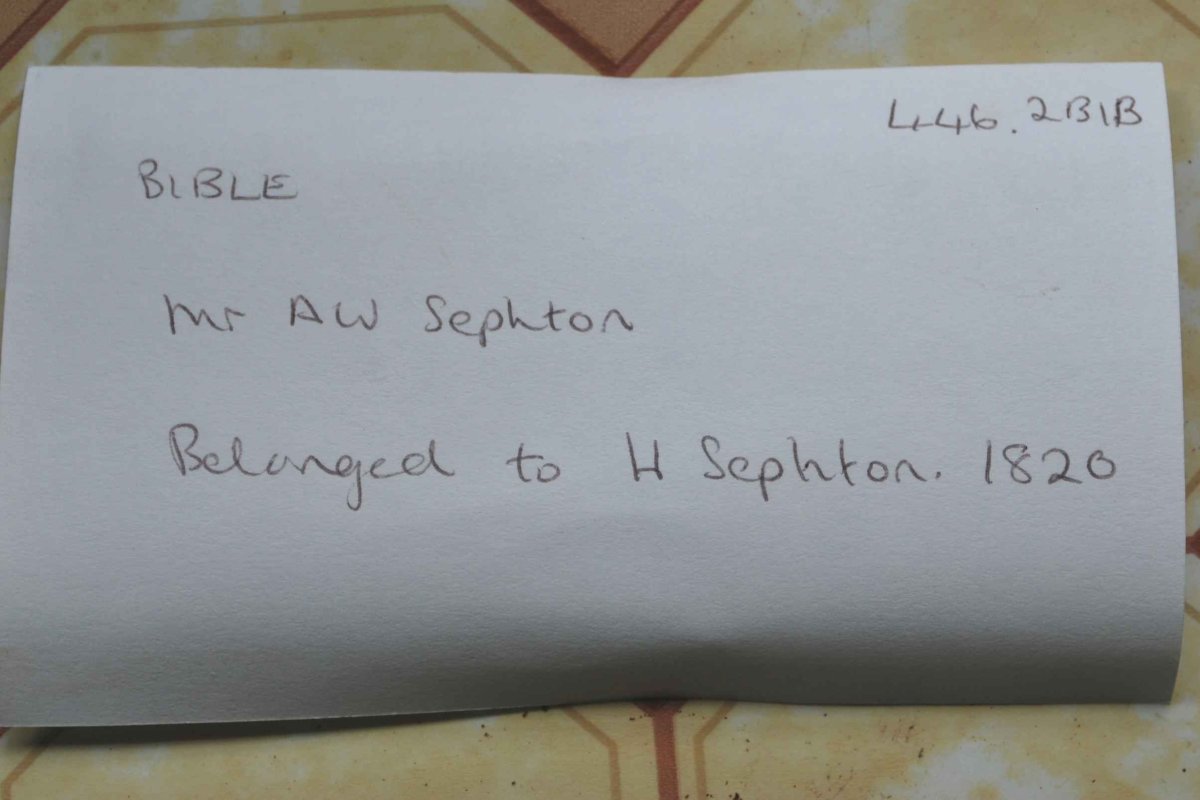 446.2BIB
BIBLE
Mr AW Sephton
Belonged to H Sephton. 1820